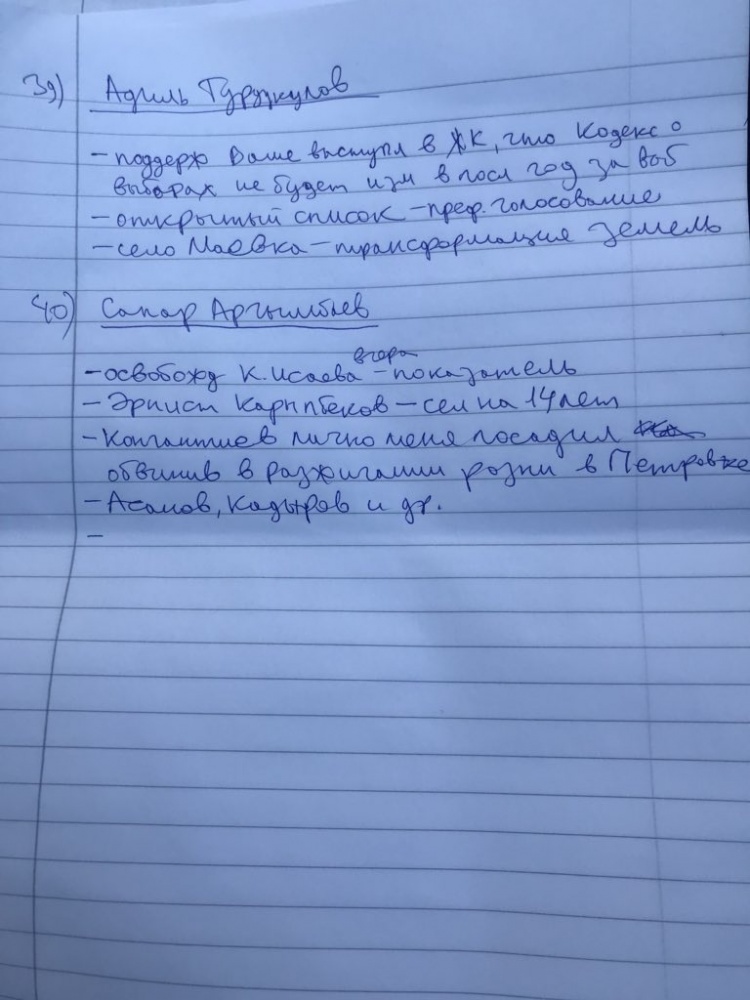 39) Адиль Турдукулов
- поддерж Ваше выступл в ЖК, что Кодекс о
выборах не будет изм в посл год за выб
- открытый список - преф. голосование
- село Маевка - трансформация земель
40) Сапар Аргымбаев
вчера
- освобожд К. Исаева - показатель
- Эрнист Карыпбеков - сел на 14 лет
- Конгантиев лично меня посадил
обвинив в разжигании розни в Петровке
- Асанов, Кадыров и др.
-